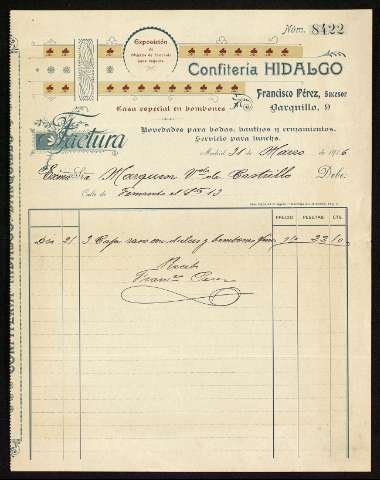 Núm. 8422
Exposición
de
Objetos de fantasía
para regalos
Confitería HIDALGO
Francisco Pérez, Sucesor
Barquillo, 9
Casa especial en bombones
Factura
Novedades para bodas, bautizos y cruzamientos.
Servicio para lunchs.
Madrid 31 de Marzo de 1916
Marquesa Vda de Castrillo Debe:
Calle de Fernando el Sto 13
PRECIO PESETAS CTS.
Día 21 3 Cajas raso con dulces y bombones finos 33 10
Recibí
Franco Perez